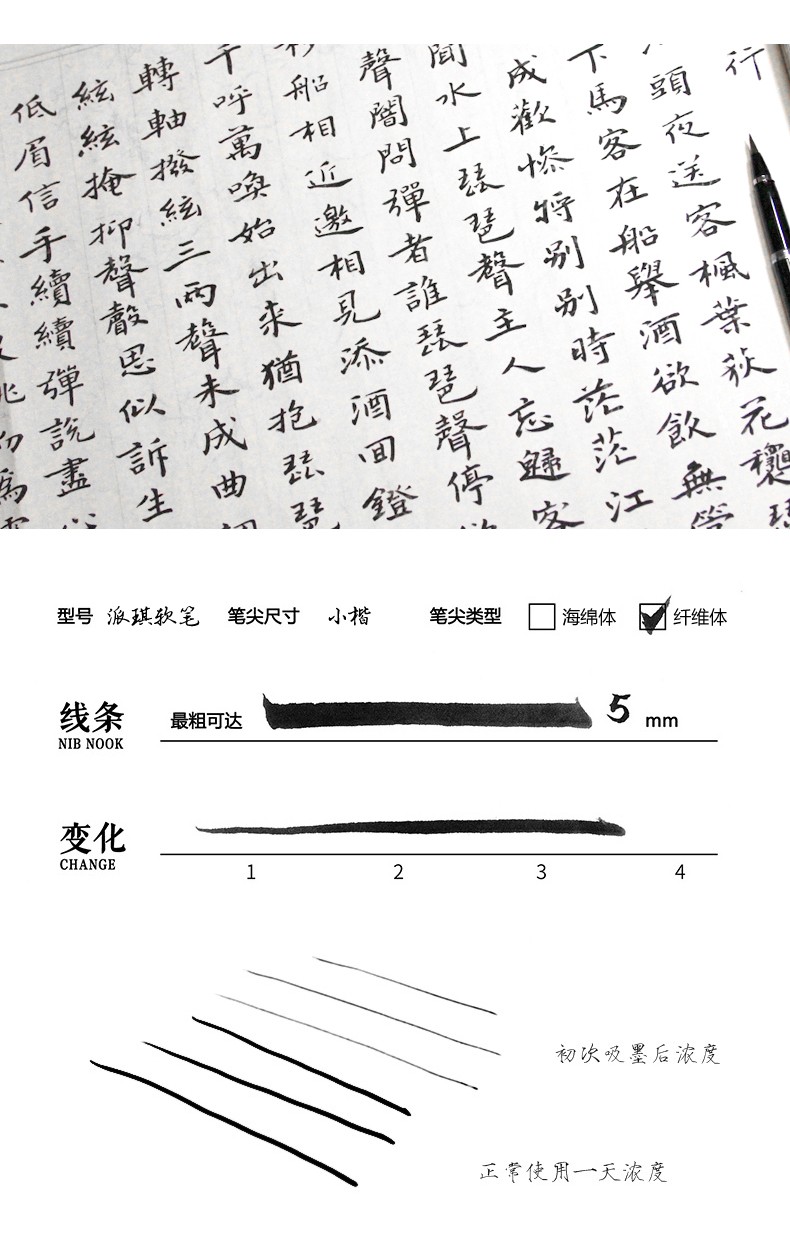 行
頭夜送客楓葉荻花龝
下馬客在船舉酒欲飲無管
成歡慘將别别時茫茫江
聞水上琵琶聲主人忘歸客
聲闇問彈者誰琵琶聲停
移船相近邀相見添酒回鐙
千呼萬喚始出来猶抱琵琶
轉軸撥絃三兩聲未成曲
絃絃掩抑聲聲思似訴生
低眉信手續續彈說盡
型号 派琪软笔 笔尖尺寸 小楷 笔尖类型 海绵体 纤维体
线条 最粗可达 5 mm
NIB NOOK
变化
CHANGE 1 2 3 4
初次吸墨后浓度
正常使用一天浓度